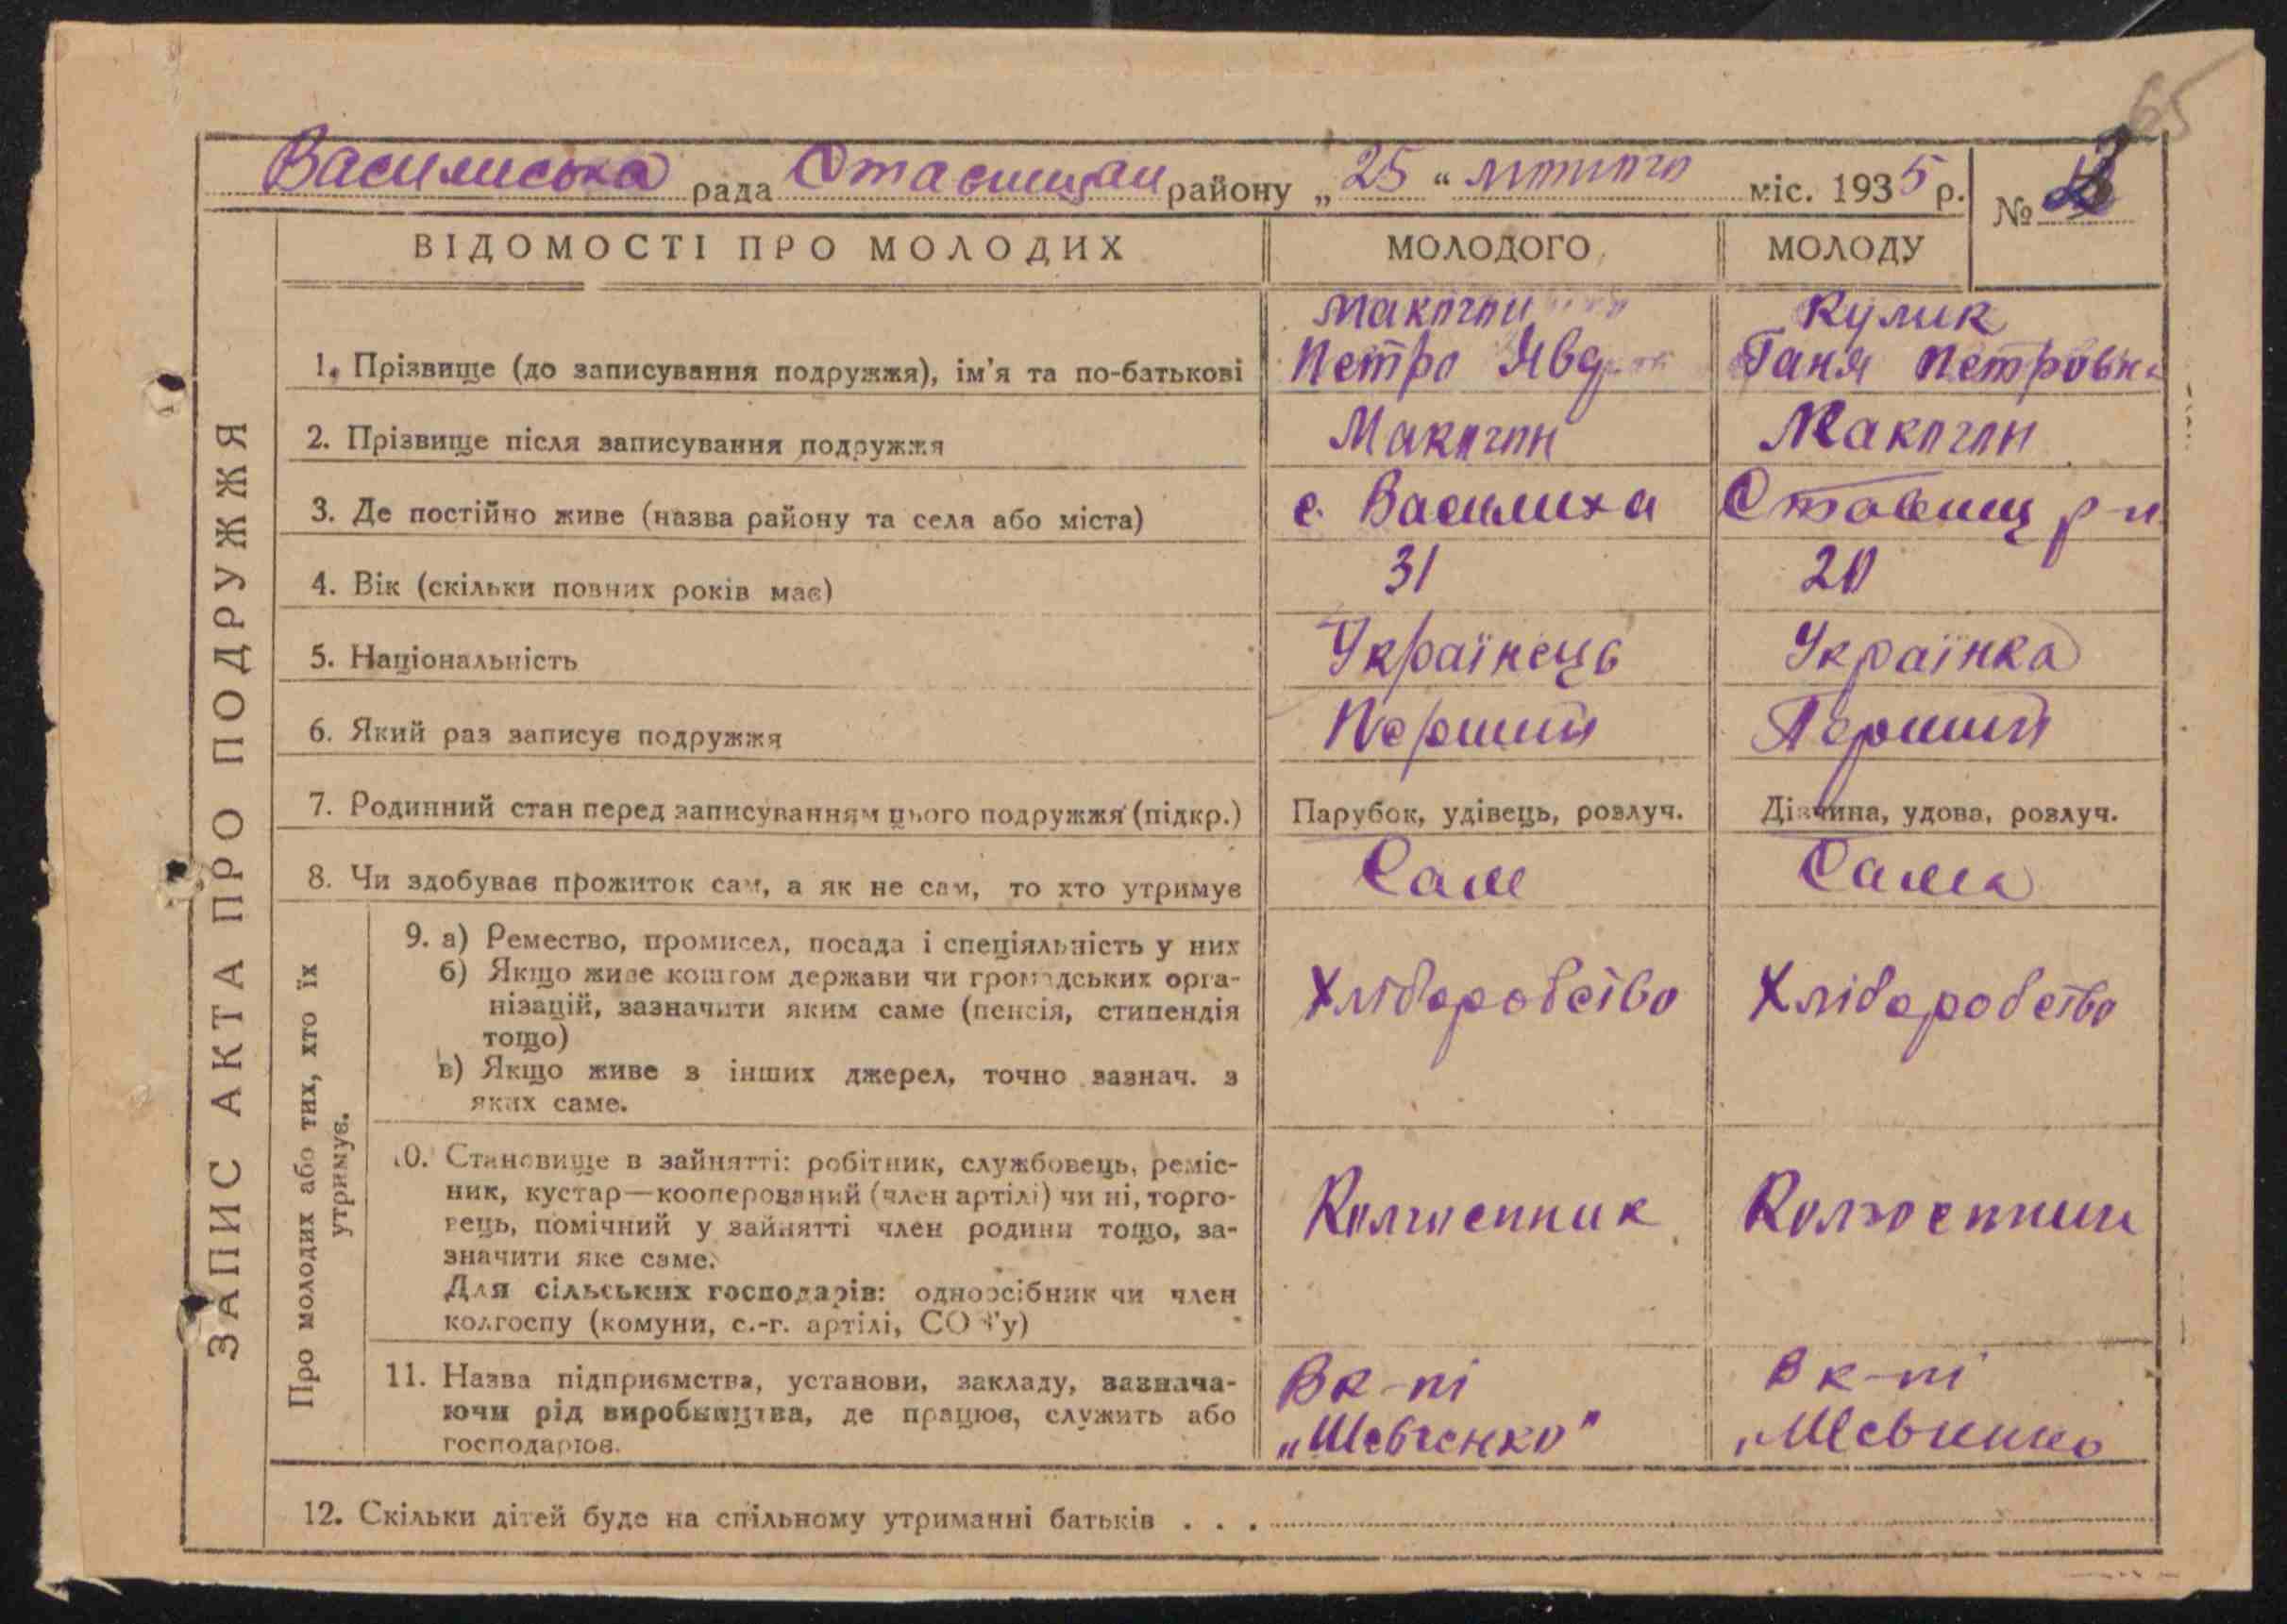 65
Василиська рада Ставищан району „25“ лютого міс. 1935 р.
№
ЗАПИС АКТА ПРО ПОДРУЖЖЯ
ВІДОМОСТІ ПРО МОЛОДИХ МОЛОДОГО МОЛОДУ
Макогон Кулик
1. Прізвище (до записування подружжя), ім'я та по-батькові Петро Явд Ганя Петровна
2. Прізвище після записування подружжя Макогон Макогон
3. Де постійно живе (назва району та села або міста) с. Василиха Ставищ р-н
4. Вік (скільки повних років має) 31 20
5. Національність Українець Українка
6. Який раз записує подружжя Перший Перший
7. Родинний стан перед записуванням цього подружжя (підкр.) Парубок, удівець, розлуч. Дівчина, удова, розлуч.
8. Чи здобуває прожиток сам, а як не сам, то хто утримує Сам Сама
Про молодих або тих, хто їх
утримує.
9. а) Ремество, промисел, посада і спеціяльність у них
б) Якщо живе коштом держави чи громадських орга-
нізацій, зазначити яким саме (пенсія, стипендія
тощо)
в) Якщо живе з інших джерел, точно зазнач. з
яких саме.
Хліборобство Хліборобство
10. Становище в зайнятті: робітник, службовець, реміс-
ник, кустар—кооперований (член артілі) чи ні, торго-
вець, помічний у зайнятті член родини тощо, за-
значити яке саме.
Для сільських господарів: одноосібник чи член
колгоспу (комуни, с.-г. артілі, СОЗ'у)
Колгоспник Колгоспниця
11. Назва підприємства, установи, закладу, зазнача-
ючи рід виробництва, де працює, служить або
господарює.
В к-пі В к-пі
„Шевченко" „Шевченко
12. Скільки дітей буде на спільному утриманні батьків . . .